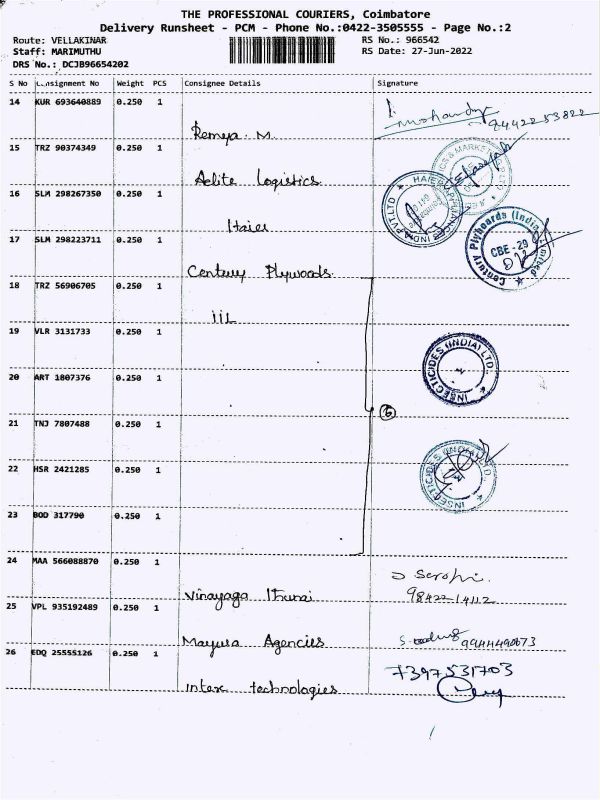 THE PROFESSIONAL COURIERS, Coimbatore
Delivery Runsheet - PCM - Phone No.:0422-3505555 - Page No.:2
Route: VELLAKINAR
RS No.: 966542
Staff: MARIMUTHU
RS Date: 27-Jun-2022
DRS No.: DCJB96654202
S No Consignment No Weight PCS Consignee Details Signature
14 KUR 693640889 0.250 1
9442253822
Remya. M.
15 TRZ 90374349 0.250 1
Aelite Logistics
16 SLM 298267350 0.250 1
HAIER APPLIANCES INDIA PVT LTD
Haier
17 SLM 298223711 0.250 1
Century Plyboards (India) Limited
CBE-29
Century Plywoods
18 TRZ 56906705 0.250 1
IIL
19 VLR 3131733 0.250 1
INSECTICIDES (INDIA) LTD.
20 ART 1807376 0.250 1
6
21 TNJ 7807488 0.250 1
22 HSR 2421285 0.250 1
INSECTICIDES (INDIA) LTD
23 BOD 317790 0.250 1
24 MAA 566088870 0.250 1
98422-14112
Vinayaga Thurai
25 VPL 935192489 0.250 1
Mayura Agencies
9944490673
26 EDQ 25555126 0.250 1
7397531703
Intex technologies